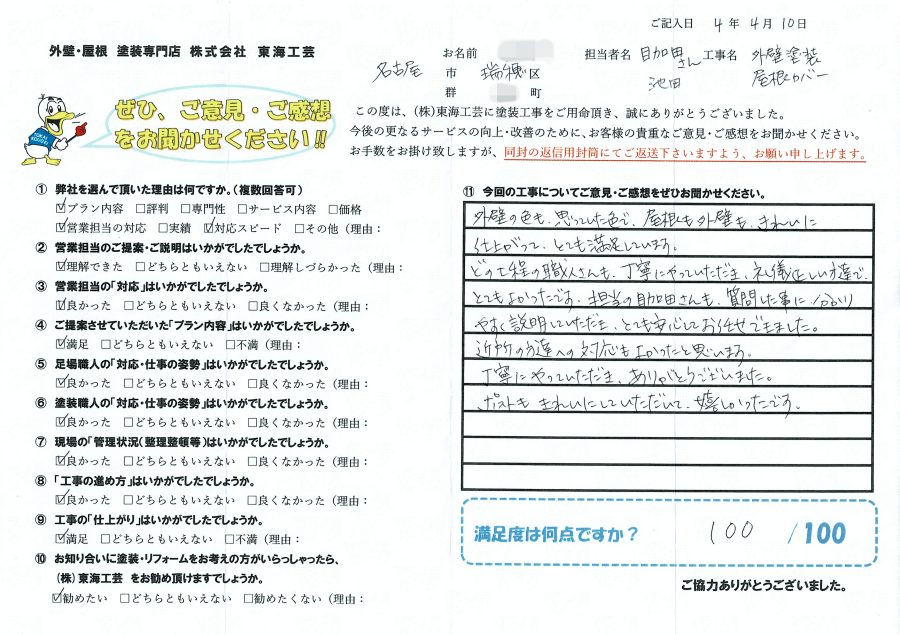 ご記入日 4年 4月 10日
外壁・屋根 塗装専門店 株式会社 東海工芸
お名前
担当者名 目加田さん 池田 工事名 外壁塗装 屋根カバー
名古屋 市 瑞穂 区
郡 町
ぜひ、ご意見・ご感想
をお聞かせください!!
この度は、(株)東海工芸に塗装工事をご用命頂き、誠にありがとうございました。
今後の更なるサービスの向上・改善のために、お客様の貴重なご意見・ご感想をお聞かせください。
お手数をお掛け致しますが、同封の返信用封筒にてご返送下さいますよう、お願い申し上げます。
① 弊社を選んで頂いた理由は何ですか。(複数回答可)
☑プラン内容 □評判 □専門性 □サービス内容 □価格
☑営業担当の対応 □実績 ☑対応スピード □その他(理由:
② 営業担当のご提案・ご説明はいかがでしたでしょうか。
☑理解できた □どちらともいえない □理解しづらかった(理由:
③ 営業担当の「対応」はいかがでしたでしょうか。
☑良かった □どちらともいえない □良くなかった(理由:
④ ご提案させていただいた「プラン内容」はいかがでしたでしょうか。
☑満足 □どちらともいえない □不満(理由:
⑤ 足場職人の「対応・仕事の姿勢」はいかがでしたでしょうか。
☑良かった □どちらともいえない □良くなかった(理由:
⑥ 塗装職人の「対応・仕事の姿勢」はいかがでしたでしょうか。
☑良かった □どちらともいえない □良くなかった(理由:
⑦ 現場の「管理状況(整理整頓等)はいかがでしたでしょうか。
☑良かった □どちらともいえない □良くなかった(理由:
⑧ 「工事の進め方」はいかがでしたでしょうか。
☑良かった □どちらともいえない □良くなかった(理由:
⑨ 工事の「仕上がり」はいかがでしたでしょうか。
☑満足 □どちらともいえない □不満(理由:
⑩ お知り合いに塗装・リフォームをお考えの方がいらっしゃったら、
(株)東海工芸 をお勧め頂けますでしょうか。
☑勧めたい □どちらともいえない □勧めたくない(理由:
⑪ 今回の工事についてご意見・ご感想をぜひお聞かせください。
外壁の色も、思っていた色で、屋根も外壁も、きれいに
仕上がって、とても満足しています。
どの工程の職人さんも、丁寧にやっていただき、礼儀正しい方達で、
とてもよかったです。担当の目加田さんも、質問した事に分かり
やすく説明していただき、とても安心してお任せできました。
近所の方達への対応もよかったと思います。
丁寧にやっていただき、ありがとうございました。
ポストもきれいにしていただいて、嬉しかったです。
満足度は何点ですか? 100 /100
ご協力ありがとうございました。